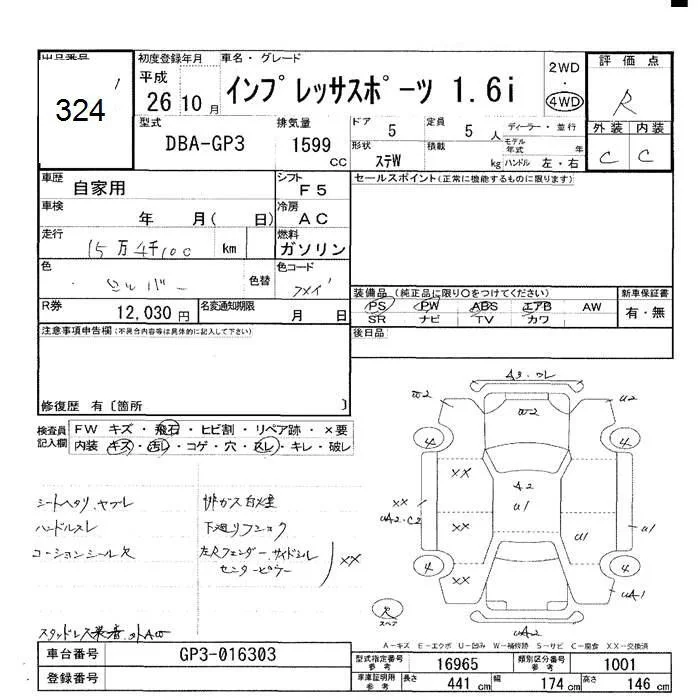 出品番号
324
初度登録年月
平成
26 10 月
車名・グレード
インプレッサスポーツ 1.6i
2WD
・
4WD
評価点
R
外装 内装
C C
型式
DBA-GP3
排気量
1599
CC
ドア
5
定員
5
人
形状
ステW
積載
kg
ディーラー・並行
モデル年式
年
ハンドル 左・右
車歴
自家用
シフト
F5
セールスポイント(正常に機能するものに限ります)
車検
年 月( 日)
冷房
AC
走行
15万4千100
km
燃料
ガソリン
色
シルバー
色替
色コード
R券
12,030 円
名変通知期限
月 日
装備品 (純正品に限り〇をつけてください)
PS PW ABS エアB AW
SR ナビ TV カワ
新車保証書
有・無
後日品
注意事項申告欄(不具合内容等は具体的に記入して下さい)
修復歴 有〔箇所 〕
検査員記入欄
FW キズ・飛石・ヒビ割・リペア跡・×要
内装 キズ・汚レ・コゲ・穴・スレ・キレ・破レ
シートヘタリ、ヤブレ
ハンドルスレ
コーションシール欠
排ガス白煙
下廻リフショク
左Rフェンダー、サイドシル
センターピラー
XX
A3
W2
W2
U2
4
4
XX
A2
U1
XX
UA2・C2
XX
U1
U1
4
4
XX
UA1
UA2
スペア
A-キズ E-エクボ U-凹み W-補修跡 S-サビ C-腐食 XX-交換済
車台番号
GP3-016303
登録番号
型式指定番号
参考
16965
類別区分番号
参考
1001
車庫証明用
参考
長さ
441 cm
幅
174 cm
高さ
146 cm